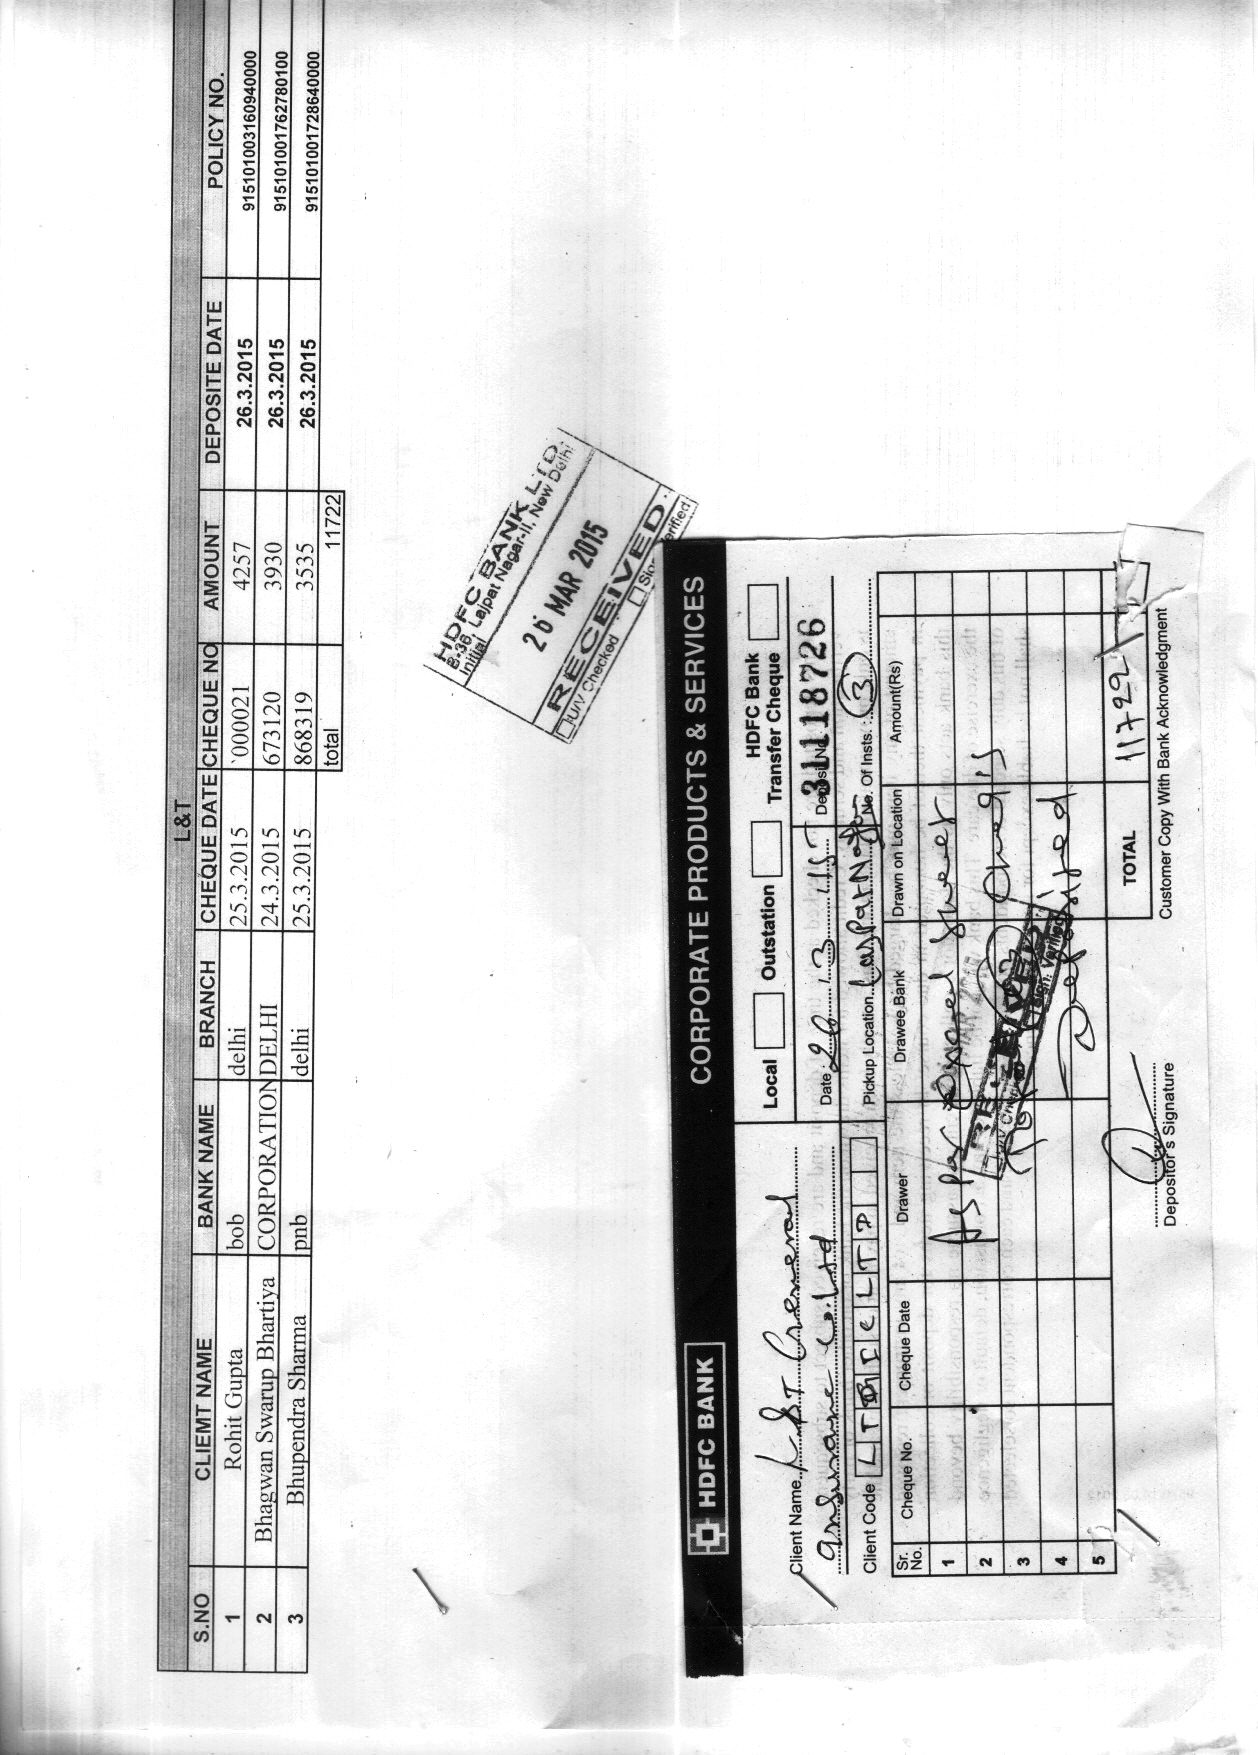 L&T
S.NO CLIEMT NAME BANK NAME BRANCH CHEQUE DATE CHEQUE NO AMOUNT DEPOSITE DATE POLICY NO.
1 Rohit Gupta bob delhi 25.3.2015 `000021 4257 26.3.2015 915101003160940000
2 Bhagwan Swarup Bhartiya CORPORATION DELHI 24.3.2015 673120 3930 26.3.2015 915101001762780100
3 Bhupendra Sharma pnb delhi 25.3.2015 868319 3535 26.3.2015 915101001728640000
total 11722
HDFC BANK LTD.
B-36, Lajpat Nagar-II, New Delhi
Initial
26 MAR 2015
RECEIVED
U/V Checked Sign
erified
HDFC BANK CORPORATE PRODUCTS & SERVICES
Local Outstation HDFC Bank Transfer Cheque
Client Name L&T General
Insurance Co. Ltd
Date : 26/3/15 Deposit No. 31118726
Pickup Location Lajpat Nagar No. Of Insts. : 3
Client Code
Sr. No. Cheque No. Cheque Date Drawer Drawee Bank Drawn on Location Amount(Rs)
1 As per Sheet
2
3
4
5
RECEIVED
Sign. Verified
TOTAL 11722
Depositor's Signature
Customer Copy With Bank Acknowledgment